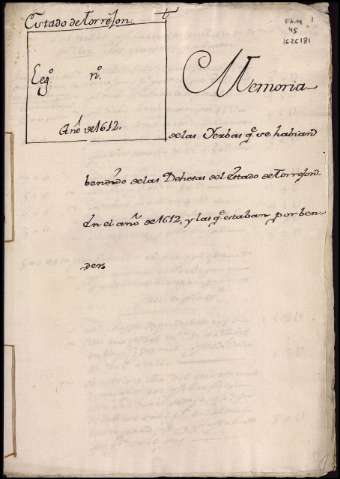 Estado de Torrejon. t
Leg.º n.º
Año de 1612.
45
Memoria
de las Yerbas q.e se habian
bendido de las Dehesas del Estado de Torrejon.
En el año de 1612, y las q.e estaban por ben
der.